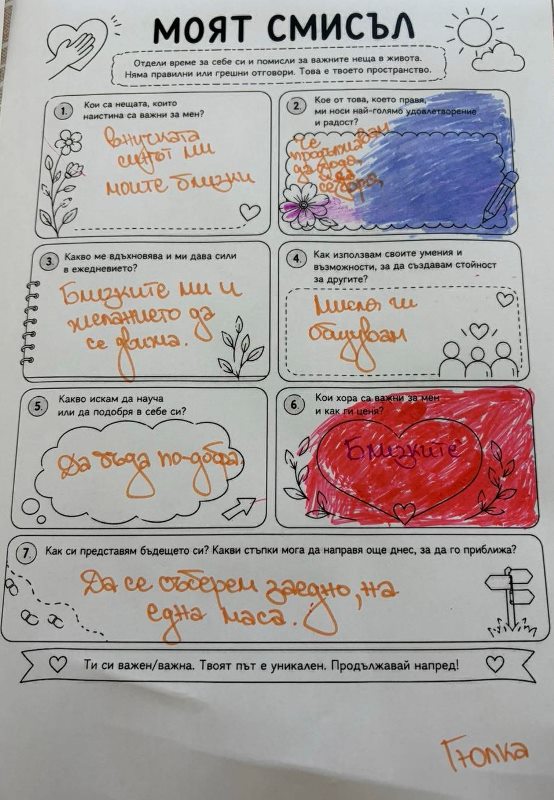 МОЯТ СМИСЪЛ
Отдели време за себе си и помисли за важните неща в живота.
Няма правилни или грешни отговори. Това е твоето пространство.
1. Кои са нещата, които
наистина са важни за мен?
внучката
синът ми
моите близки
2. Кое от това, което правя,
ми носи най-голямо удовлетворение
и радост?
Че
продължавам
да
3. Какво ме вдъхновява и ми дава сили
в ежедневието?
Близките ми и
желанието да
се движа.
4. Как използвам своите умения и
възможности, за да създавам стойност
за другите?
5. Какво искам да науча
или да подобря в себе си?
Да бъда по-добра.
6. Кои хора са важни за мен
и как ги ценя?
Близките
7. Как си представям бъдещето си? Какви стъпки мога да направя още днес, за да го приближа?
Да се съберем заедно, на
една маса.
Ти си важен/важна. Твоят път е уникален. Продължавай напред!
Гюлка